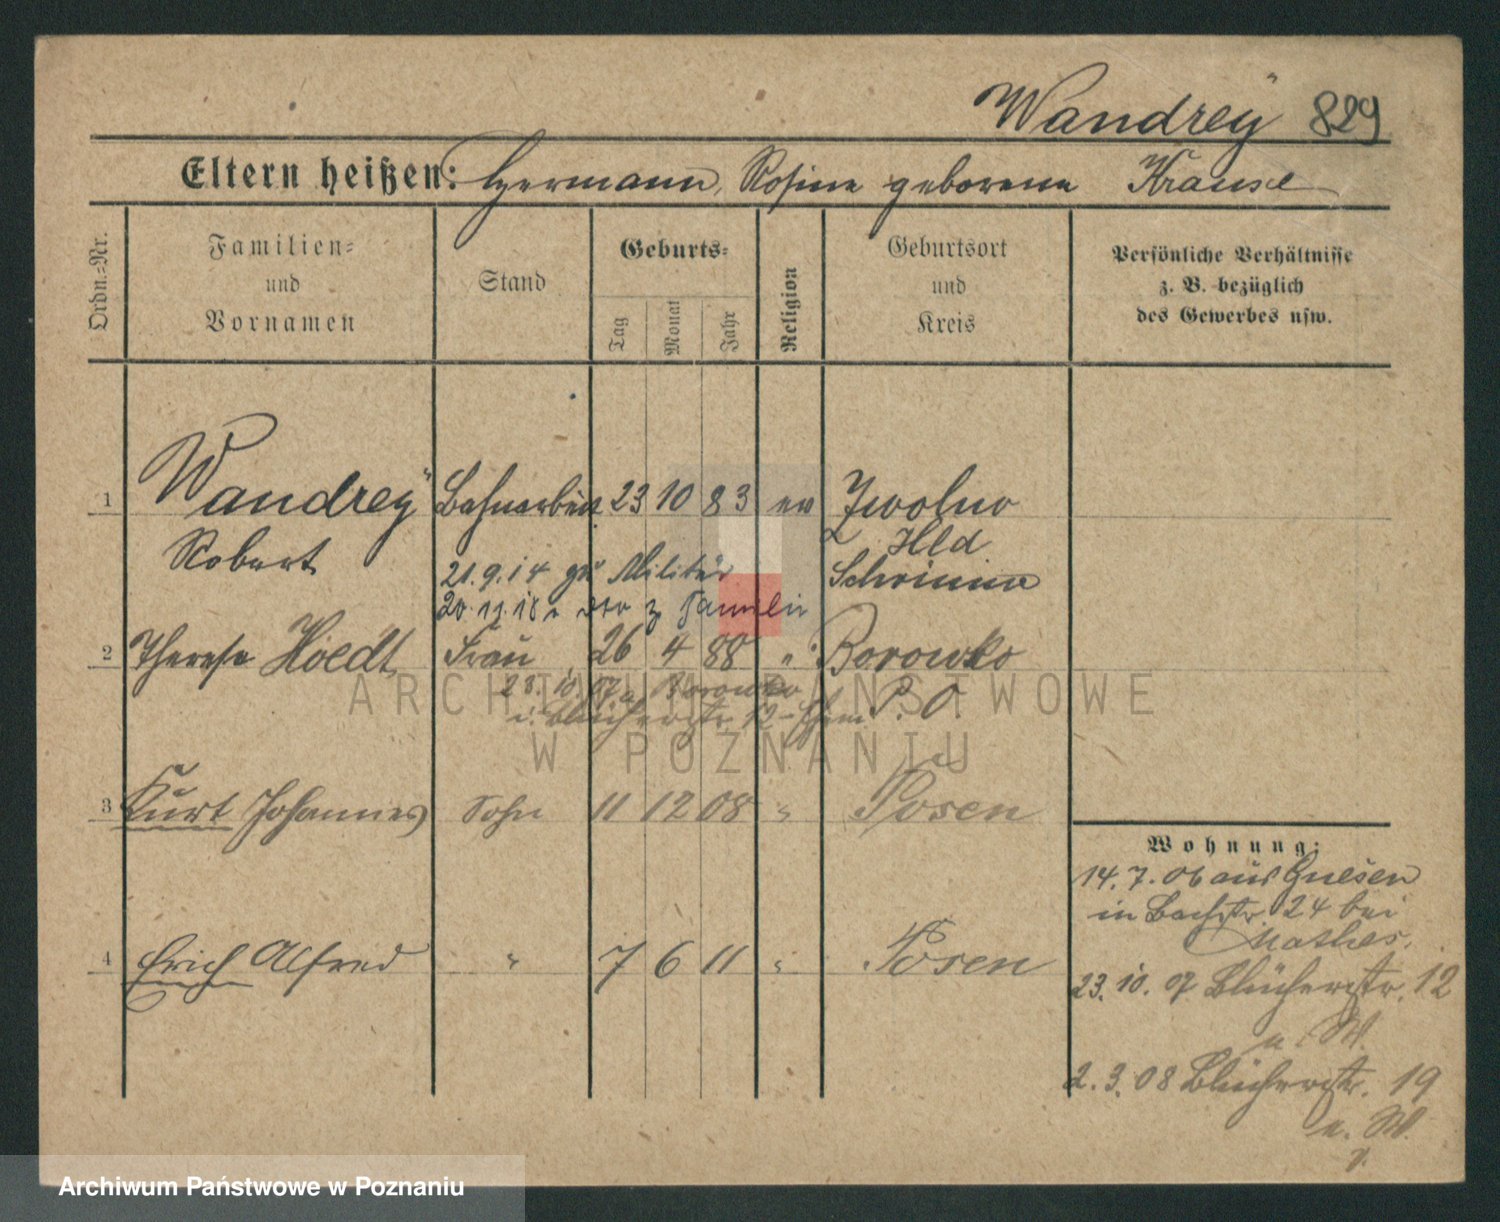 Wandrey 829
Eltern heißen: Hermann, Rosine geborene Krause
Ordn.=Nr.
Familien=
und
Vornamen
Stand
Geburts=
Tag
Monat
Jahr
Religion
Geburtsort
und
Kreis
Persönliche Verhältnisse
z. B. bezüglich
des Gewerbes usw.
1 Wandrey Bahnarbeit. 23 10 83 ev Zwolno
Robert Hld
21.9.14 zu Militär Schrimm
20.11.18 z Familie
2 Therese Hoedt Frau 26 4 88 " Borowko
23. 10. 07 a Borowko P. O.
i. Blücherstr 12
ARCHIWUM PAŃSTWOWE
W POZNANIU
3 Kurt Johannes Sohn 11 12 08 " Posen
4 Erich Alfred " 7 6 11 " Posen
Wohnung:
14. 7. 06 aus Gnesen
in Bachstr 24 bei
Mathes.
23. 10. 07 Blücherstr. 12
u. W.
2. 3. 08 Blücherstr. 19
u. W.
Archiwum Państwowe w Poznaniu